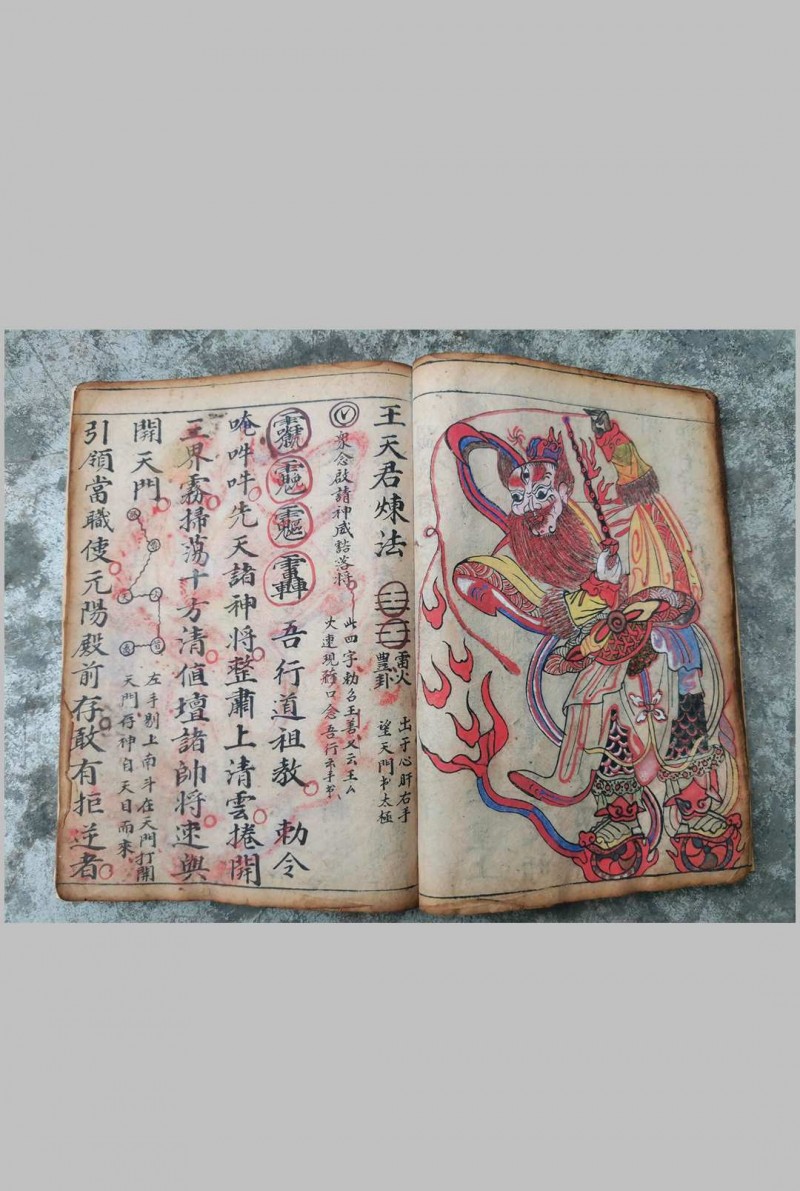 王天君煉法
雷火
豐卦
出于心肝右手
望天門书太極
眾念啟請神咸詣落將
此四字勅名王善又云王厶
火連現篩口念吾行示手书
吾行道祖敖 勅令
唵吽吽先天諸神將整肅上清雲捲開
三界霧掃荡十方清值壇諸帥將速與
開天門
左手剔上南斗在天門打開
天門存神自天目而來
引領當職使元陽殿前存敢有拒逆者